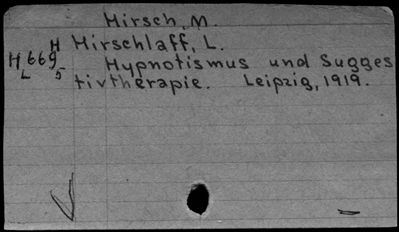 Hirsch, M.
H Hirschlaff, L.
H 669 Hypnotismus und Sugges
L 5 tivtherapie. Leipzig, 1919.